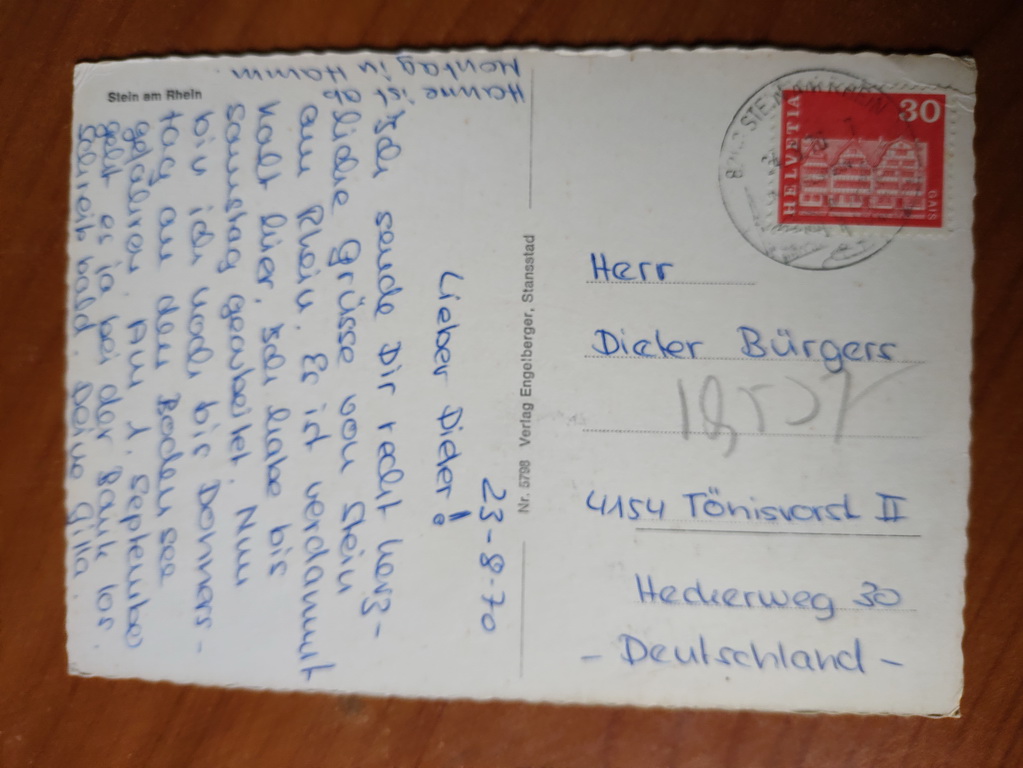 Stein am Rhein
23-8-70
Lieber Dieter!
Ich sende Dir recht herz-
liche Grüsse von Stein
am Rhein. Es ist verdammt
kalt hier. Ich habe bis
Samstag gearbeitet. Nun
bin ich noch bis Donners-
tag an den Bodensee
gefahren. Am 1. September
geht es ja bei der Bank los.
Schreib bald. Deine Gilla.
Hanne ist ab
Montag in Hamm.
Nr. 5798 Verlag Engelberger, Stansstad
STEIN AM RHEIN
HELVETIA
30
GAIS
Herr
Dieter Bürgers
4154 Tönisvorst II
Heckerweg 30
- Deutschland -